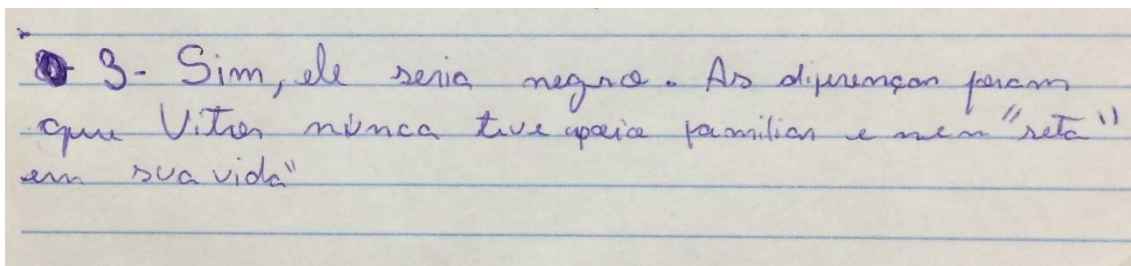 3- Sim, ele seria negro. As diferenças foram
que Vitor nunca tive apoio familiar e nem "reta"
em sua vida"